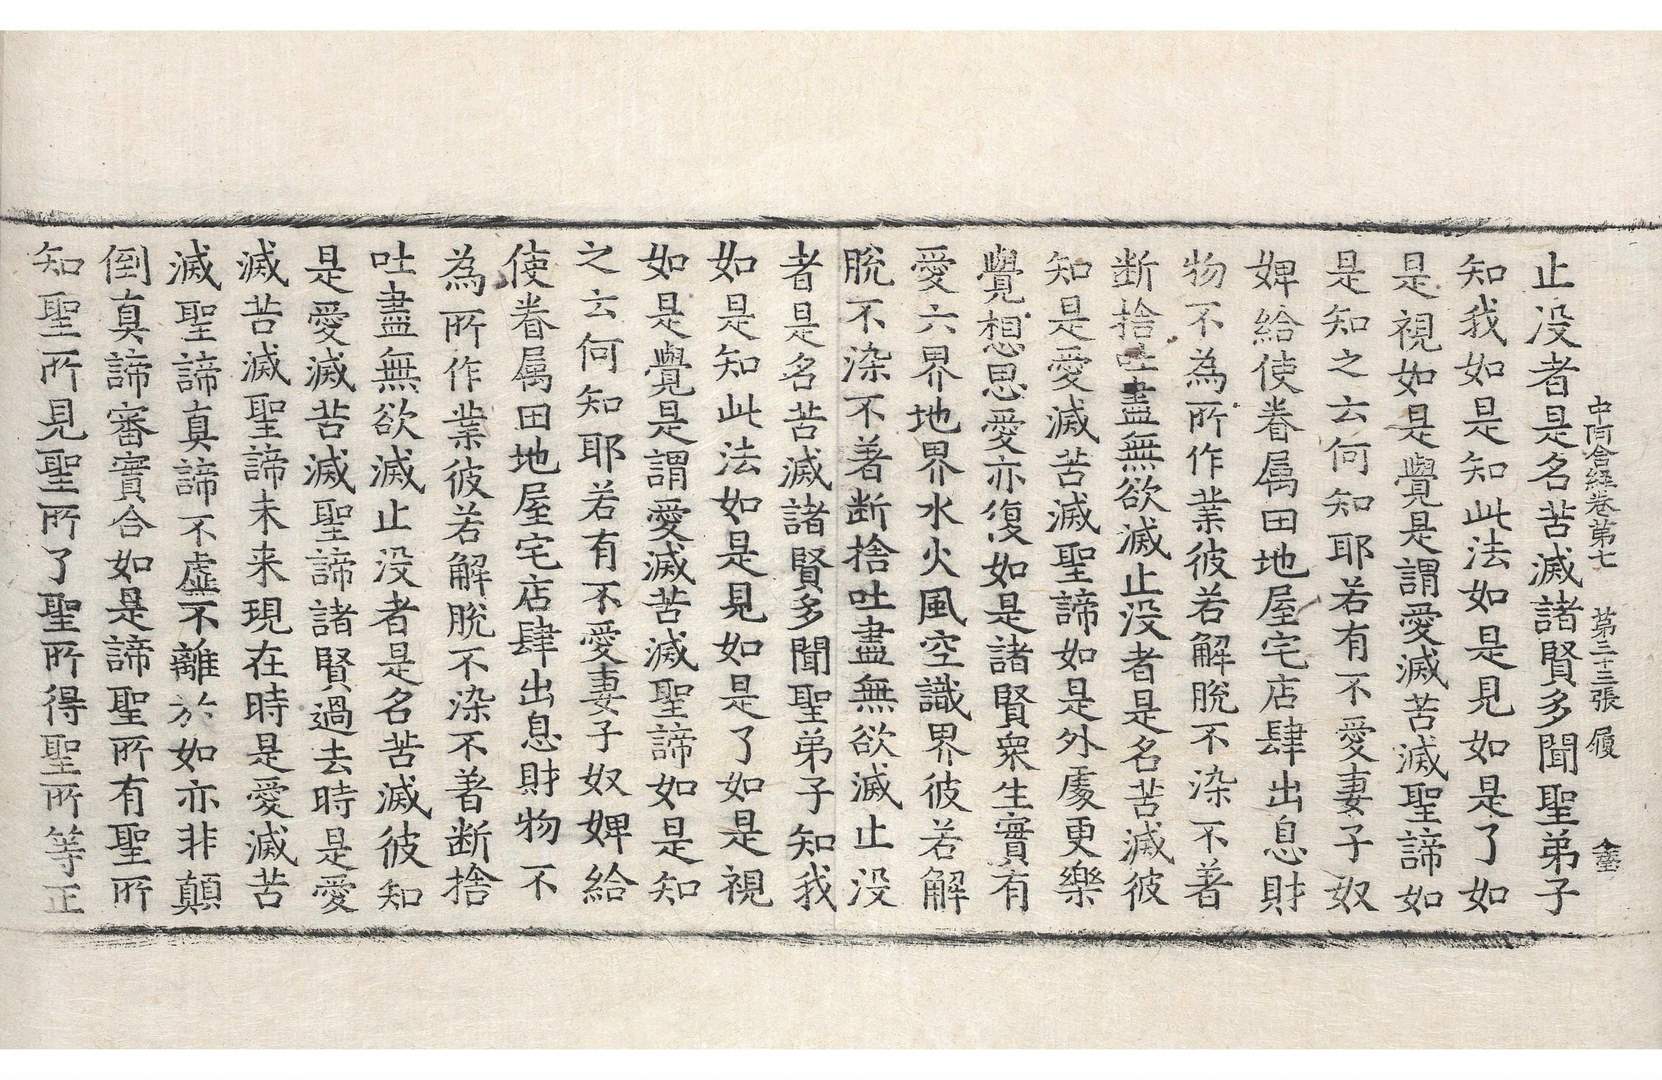 中阿含經卷第七 第二十三張 履
止没者是名苦滅諸賢多聞聖弟子
知我如是知此法如是見如是了如
是視如是覺是謂愛滅苦滅聖諦如
是知之云何知耶若有不愛妻子奴
婢給使眷属田地屋宅店肆出息財
物不為所作業彼若解脫不染不著
断捨吐盡無欲滅止没者是名苦滅彼
知是愛滅苦滅聖諦如是外處更樂
覺想思愛亦復如是諸賢衆生實有
愛六界地界水火風空識界彼若解
脫不染不著断捨吐盡無欲滅止没
者是名苦滅諸賢多聞聖弟子知我
如是知此法如是見如是了如是視
如是覺是謂愛滅苦滅聖諦如是知
之云何知耶若有不愛妻子奴婢給
使眷属田地屋宅店肆出息財物不
為所作業彼若解脫不染不著断捨
吐盡無欲滅止没者是名苦滅彼知
是愛滅苦滅聖諦諸賢過去時是愛
滅苦滅聖諦未来現在時是愛滅苦
滅聖諦真諦不虛不離於如亦非顛
倒真諦審實合如是諦聖所有聖所
知聖所見聖所了聖所得聖所等正